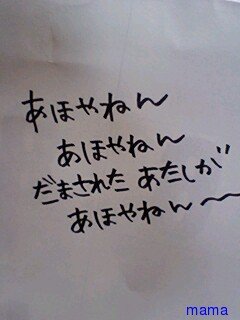 あほやねん
あほやねん
だまされた あたしが
あほやねん〜
mama